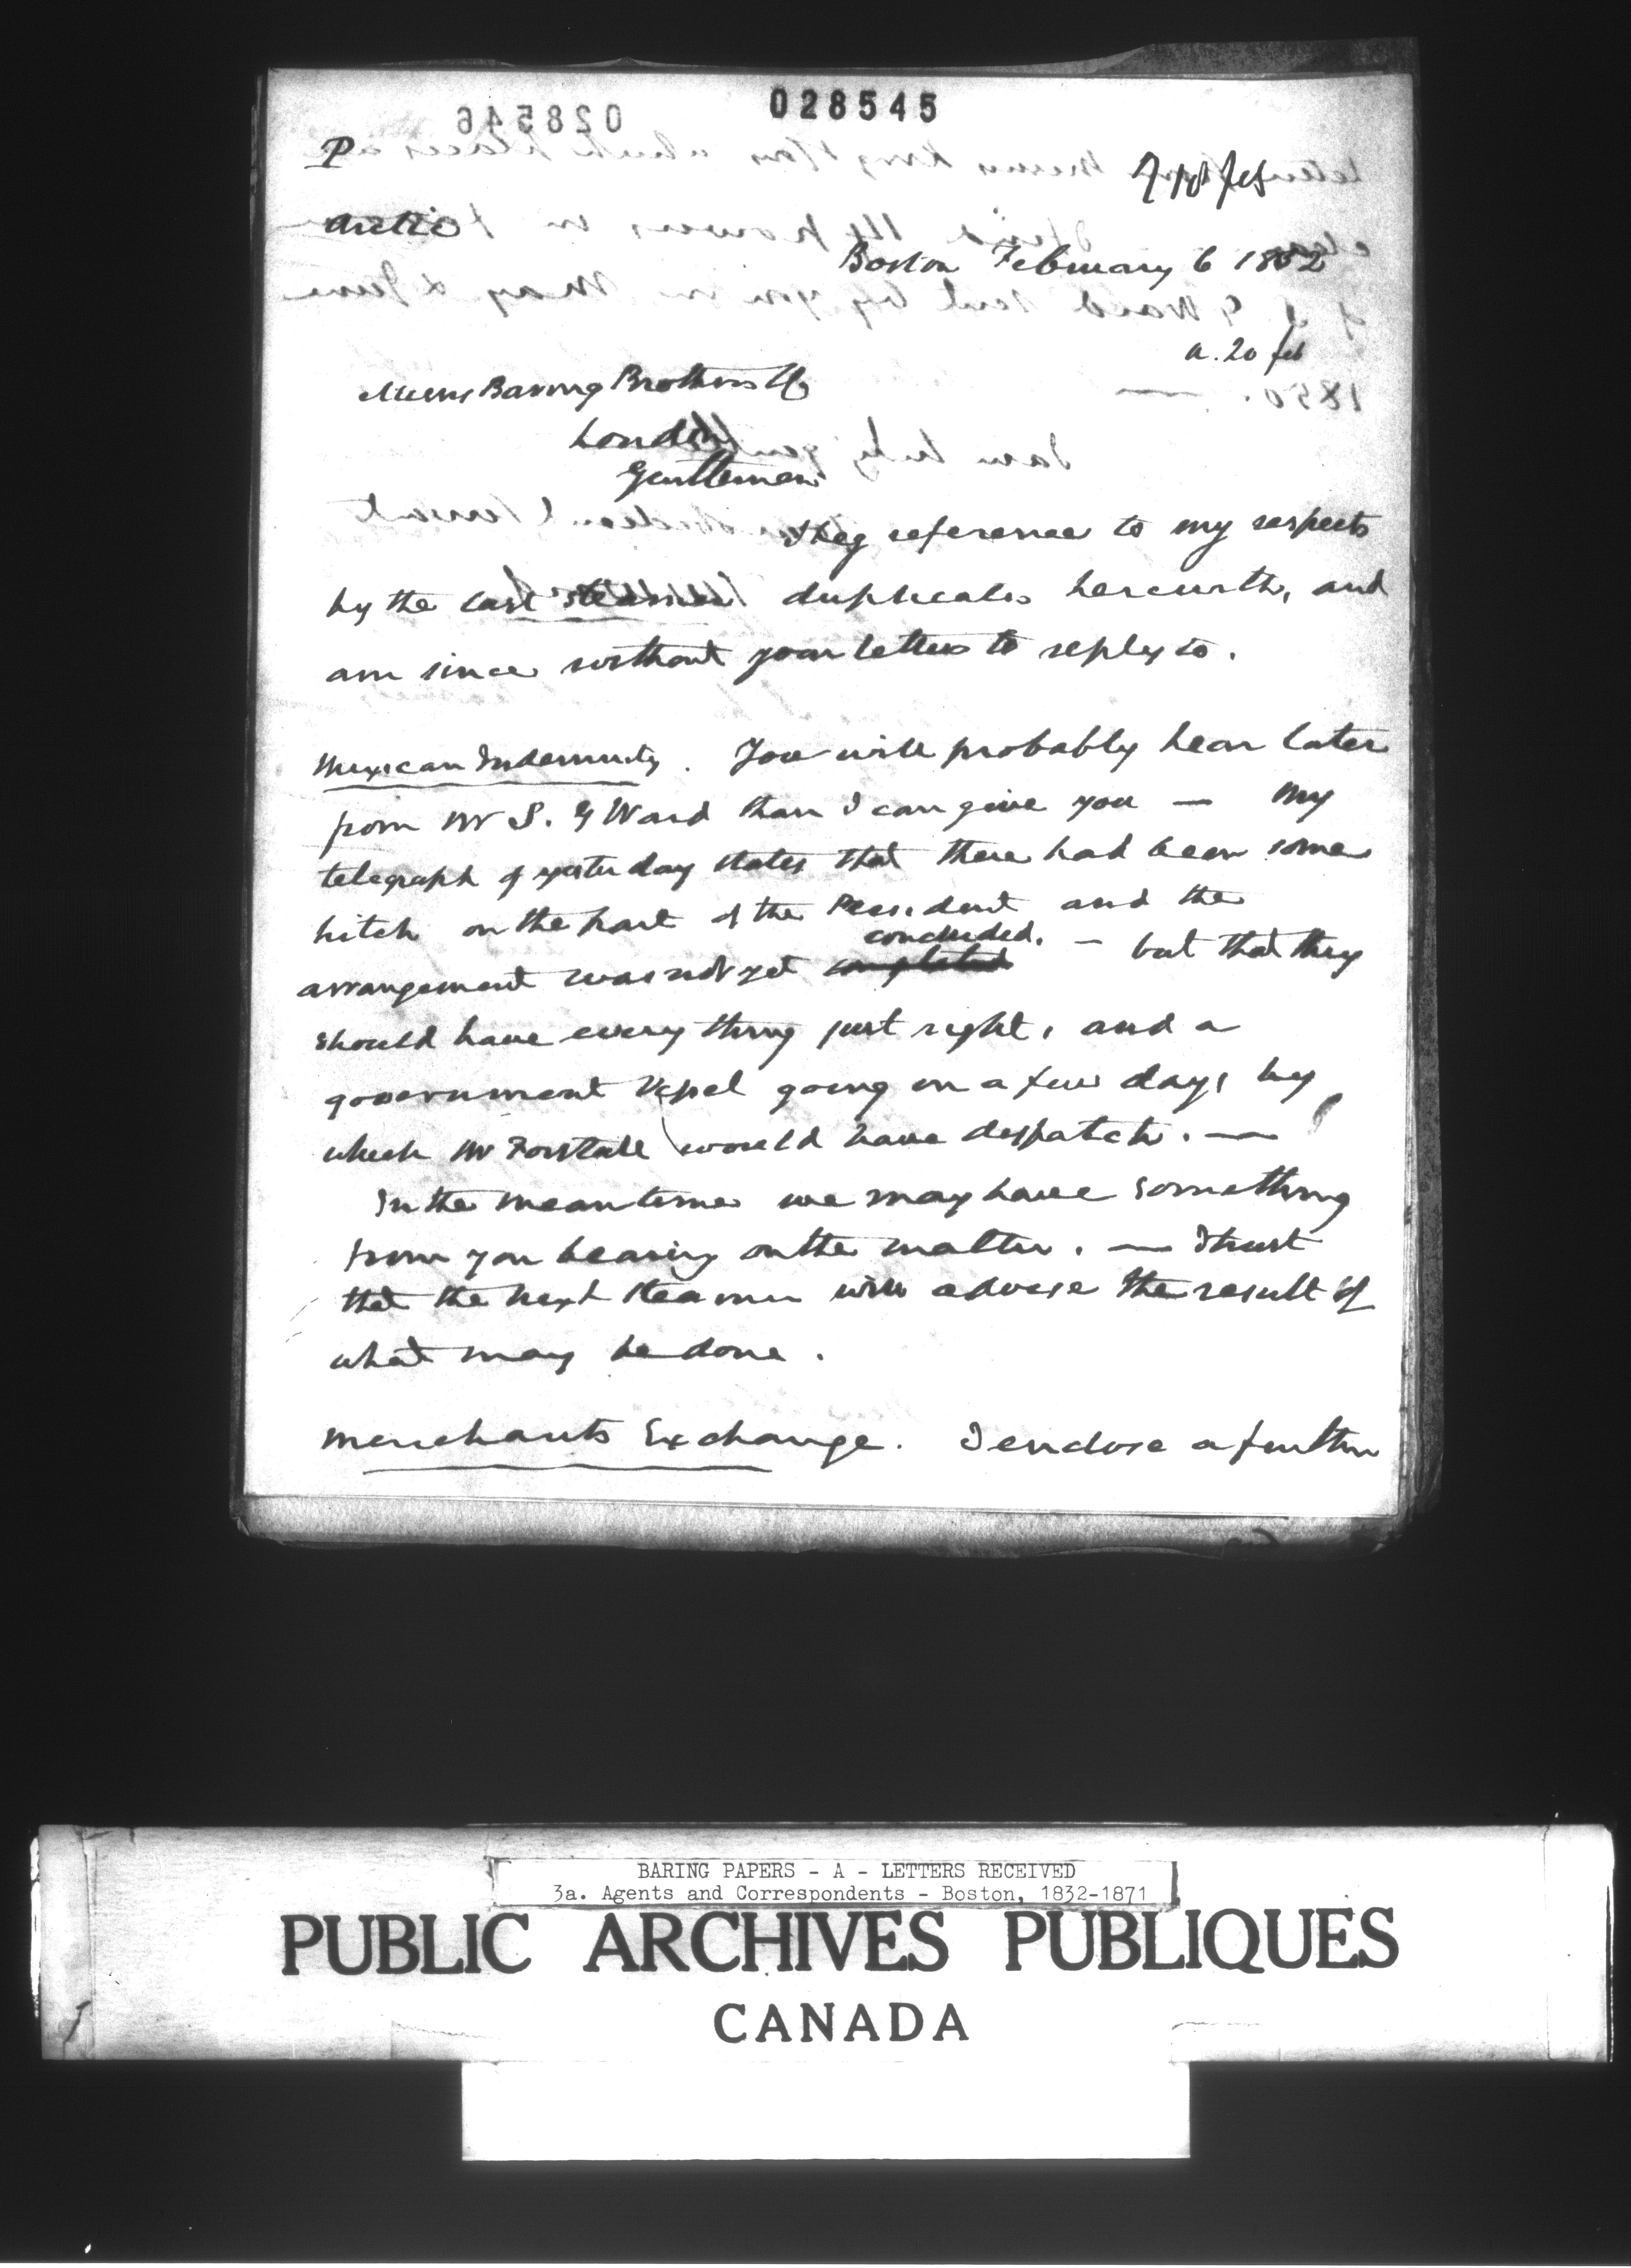 028546
028545
P
Arctic
Boston February 6 1852
a. 20 feb
Messrs Baring Brothers & Co
London
Gentlemen
I beg reference to my respects
by the last steamer duplicates herewith, and
am since without your letters to reply to.
Mexican Indemnity. You will probably hear later
from Mr S. G Ward than I can give you — My
telegraph of yesterday states that there had been some
hitch on the part of the President and the
arrangement was not yet completed concluded. — but that they
should have every thing just right, and a
government vessel going in a few days by
which Mr Forstall would have despatch. —
In the mean time we may have something
from you bearing on the matter. — I trust
that the next steamer will advise the result of
what may be done.
Merchants Exchange. I enclose a further
BARING PAPERS - A - LETTERS RECEIVED
3a. Agents and Correspondents - Boston, 1832-1871
PUBLIC ARCHIVES PUBLIQUES
CANADA